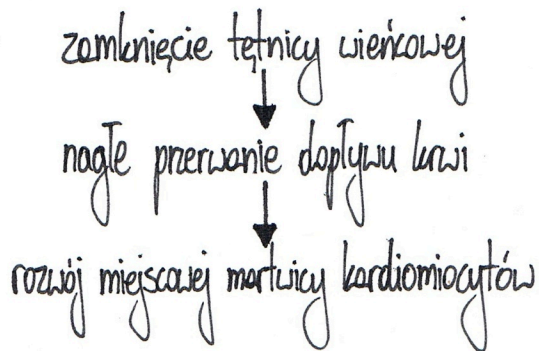 zamknięcie tętnicy wieńcowej
nagłe przerwanie dopływu krwi
rozwój miejscowej martwicy kardiomiocytów